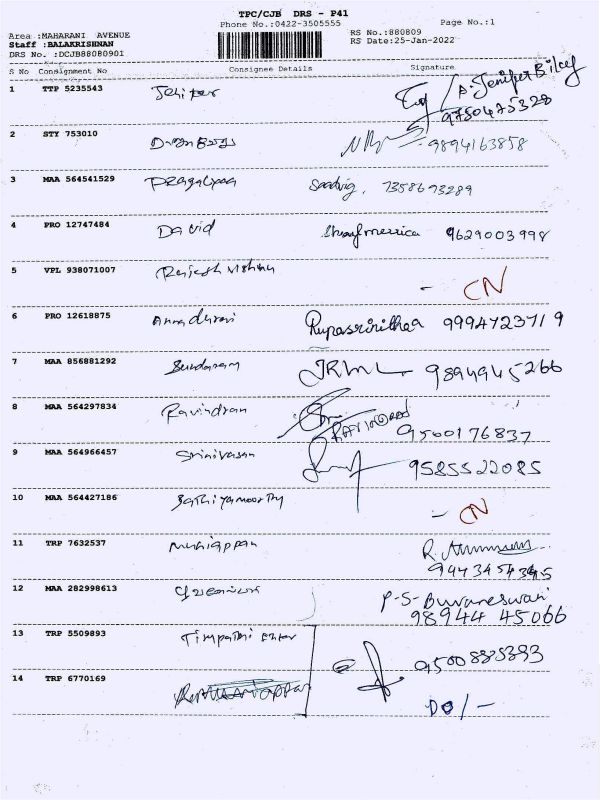 TPC/CJB DRS - P41
Phone No.:0422-3505555 Page No.:1
Area :MAHARANI AVENUE RS No.:880809
Staff :BALAKRISHNAN RS Date:25-Jan-2022
DRS No. :DCJB88080901
S No Consignment No Consignee Details Signature
1 TTP 5235543 A. Jenifer
9750475328
2 STY 753010 9894163858
3 MAA 564541529 7358693289
4 PRO 12747484 David 9629003998
5 VPL 938071007 Rajesh Vishnu - CN
6 PRO 12618875 Annadurai Rupassrinithaa 9994723719
7 MAA 856881292 Sundaram 9894945266
8 MAA 564297834 Ravindran RAVINDRAN
9500176837
9 MAA 564966457 Srinivasan 9585522085
10 MAA 564427186 Sathiyamoorthy - CN
11 TRP 7632537 Muniappan R.
12 MAA 282998613 P-S-Buvaneswari
98944 45066
13 TRP 5509893 Tirupathi 9500885393
14 TRP 6770169 DO/-